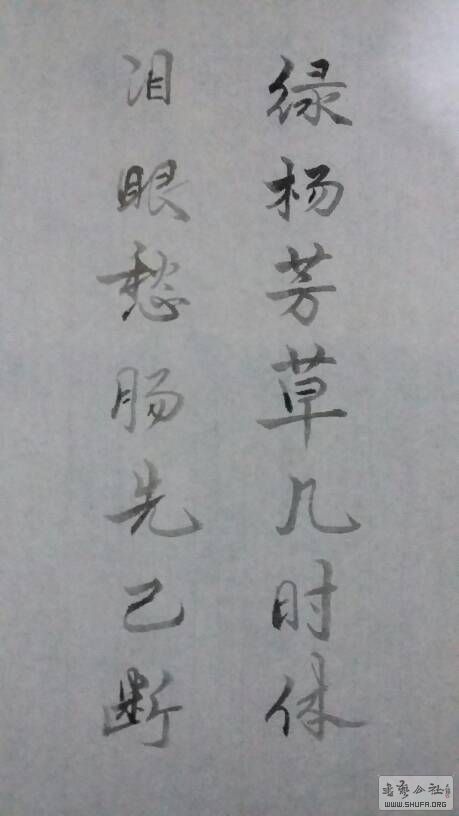 绿杨芳草几时休
泪眼愁肠先已断
书艺公社
WWW.SHUFA.ORG